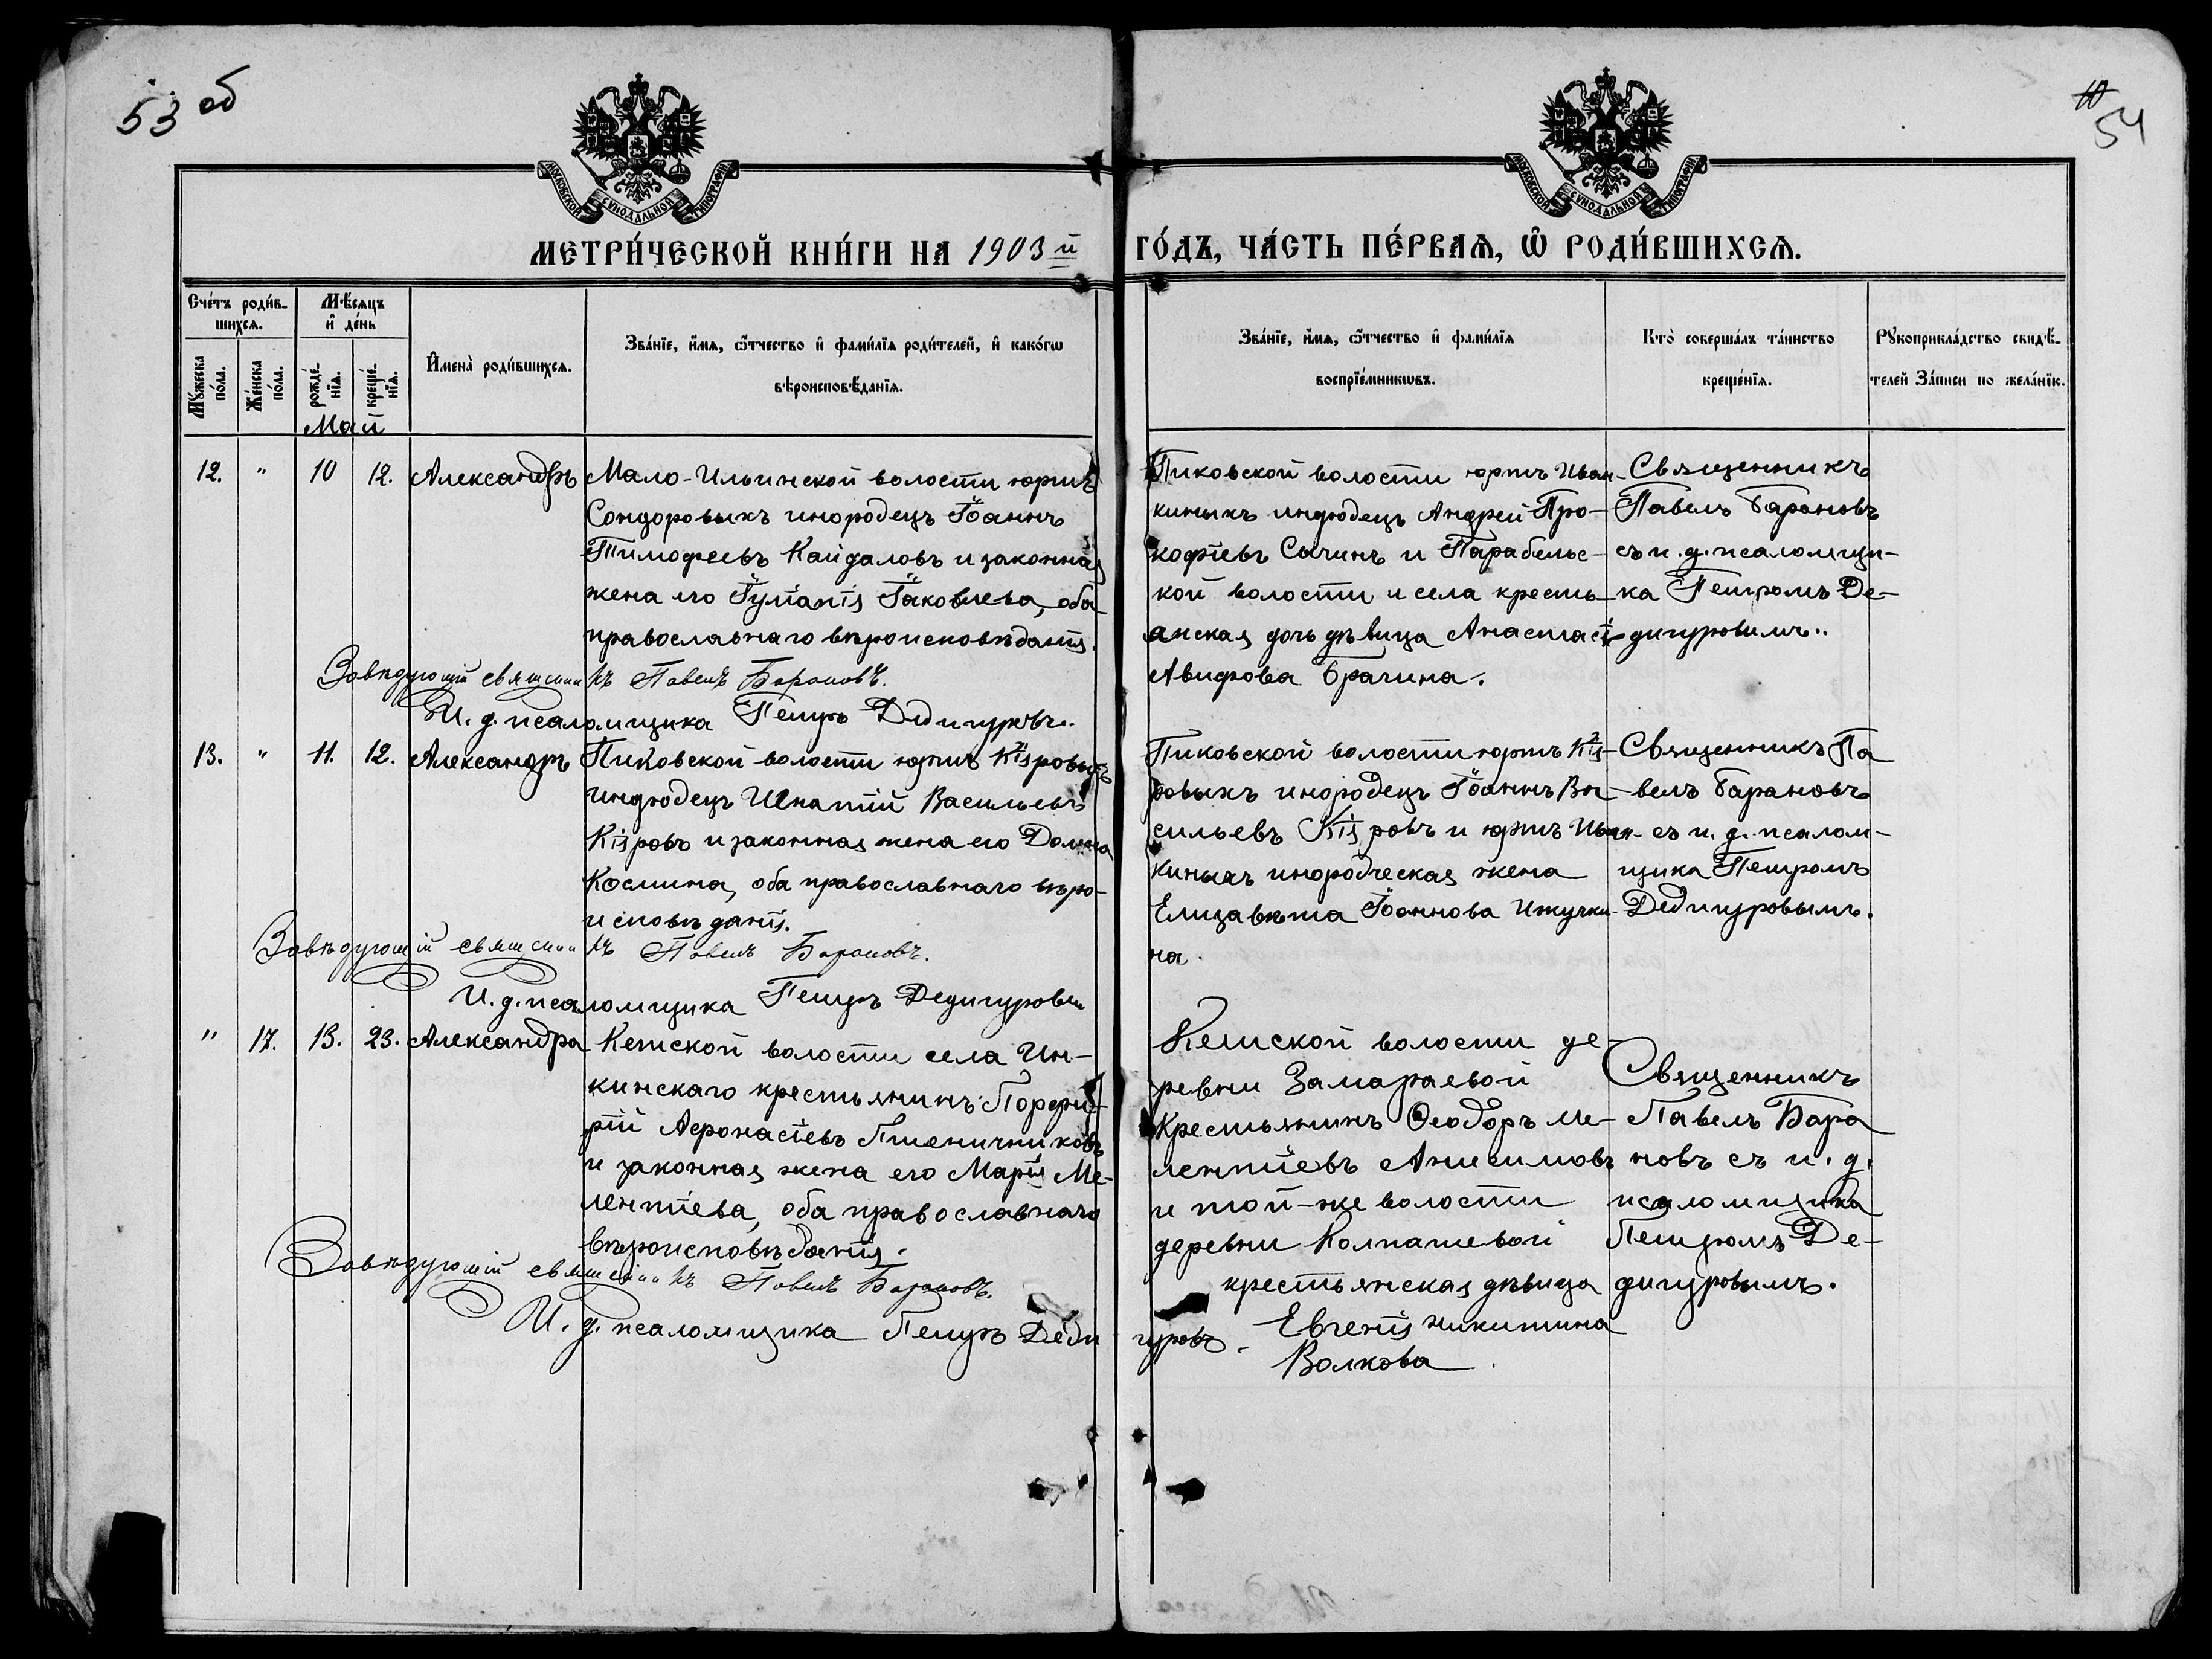 53 об
10
54
МОСКОВСКОЙ СѴНОДАЛЬНОЙ ТИПОГРАФІИ
МОСКОВСКОЙ СѴНОДАЛЬНОЙ ТИПОГРАФІИ
МЕТРИ́ЧЕСКОЙ КНИ́ГИ НА 1903 й
ГО́ДЪ, ЧА́СТЬ ПЕ́РВАѦ, Ѡ҆ РОДИ́ВШИХСѦ.
Сче́тъ роди́в-
шихсѧ.
Мѣ́сѧцъ
и҆ де́нь
Мꙋ́жеска
по́ла.
Же́нска
по́ла.
рожде́-
нїѧ.
креще́-
нїѧ.
И҆мена̀ роди́вшихсѧ.
Зва́нїе, и҆́мѧ, ѻ҆́тчество и҆ фами́лїѧ роди́телей, и҆ како́гѡ
вѣроисповѣ́данїѧ.
Зва́нїе, и҆́мѧ, ѻ҆́тчество и҆ фами́лїѧ
воспрїе́мникѡвъ.
Кто̀ соверша́лъ та́инство
креще́нїѧ.
Рꙋкоприкла́дство свидѣ́-
телей За́писи по жела́нїю.
Май
12. " 10 12. Александръ
Мало-Ильинской волости юртъ
Сондоровыхъ инородецъ Іоаннъ
Тимофеевъ Кайдаловъ и законная
жена его Іуліанія Іаковлева, оба
православнаго вѣроисповѣданія.
Завѣдующій священникъ Павелъ Барановъ.
И. д. псаломщика Петръ Дедигуровъ.
Пиковской волости юртъ Иван-
киныхъ инородецъ Андрей Про-
кофіевъ Сычинъ и Парабельс-
кой волости и села кресть-
янская дочь дѣвица Анастасія
Авифова Брагина.
Священникъ
Павелъ Барановъ
съ и. д. псаломщи-
ка Петромъ Де-
дигуровымъ.
13. " 11. 12. Александръ
Пиковской волости юртъ Кіяровыхъ
инородецъ Игнатій Васильевъ
Кіяровъ и законная жена его Домна
Космина, оба православнаго вѣро-
исповѣданія.
Завѣдующій священникъ Павелъ Барановъ.
И. д. псаломщика Петръ Дедигуровъ
Пиковской волости юртъ Кія-
ровыхъ инородецъ Іоаннъ Ва-
сильевъ Кіяровъ и юртъ Иван-
киныхъ инородческая жена
Елизавета Іоаннова Ижучки-
на.
Священникъ Па
велъ Барановъ
съ и. д. псалом-
щика Петромъ
Дедигуровымъ.
" 17. 13. 23. Александра
Кетской волости села Ин-
кинскаго крестьянинъ Порфи-
рій Афонасіевъ Пшеничниковъ
и законная жена его Марія Ме-
лентіева, оба православнаго
вѣроисповѣданія.
Завѣдующій священникъ Павелъ Барановъ.
И. д. псаломщика Петръ Деди
гуровъ.
Кетской волости де-
ревни Замараевой
крестьянинъ Ѳеодоръ Ме-
лентіевъ Анисимовъ
и той-же волости
деревни Колпашевой
крестьянская дѣвица
Евгенія Никитина
Волкова.
Священникъ
Павелъ Бара
новъ съ и. д.
псаломщика
Петромъ Де-
дигуровымъ.